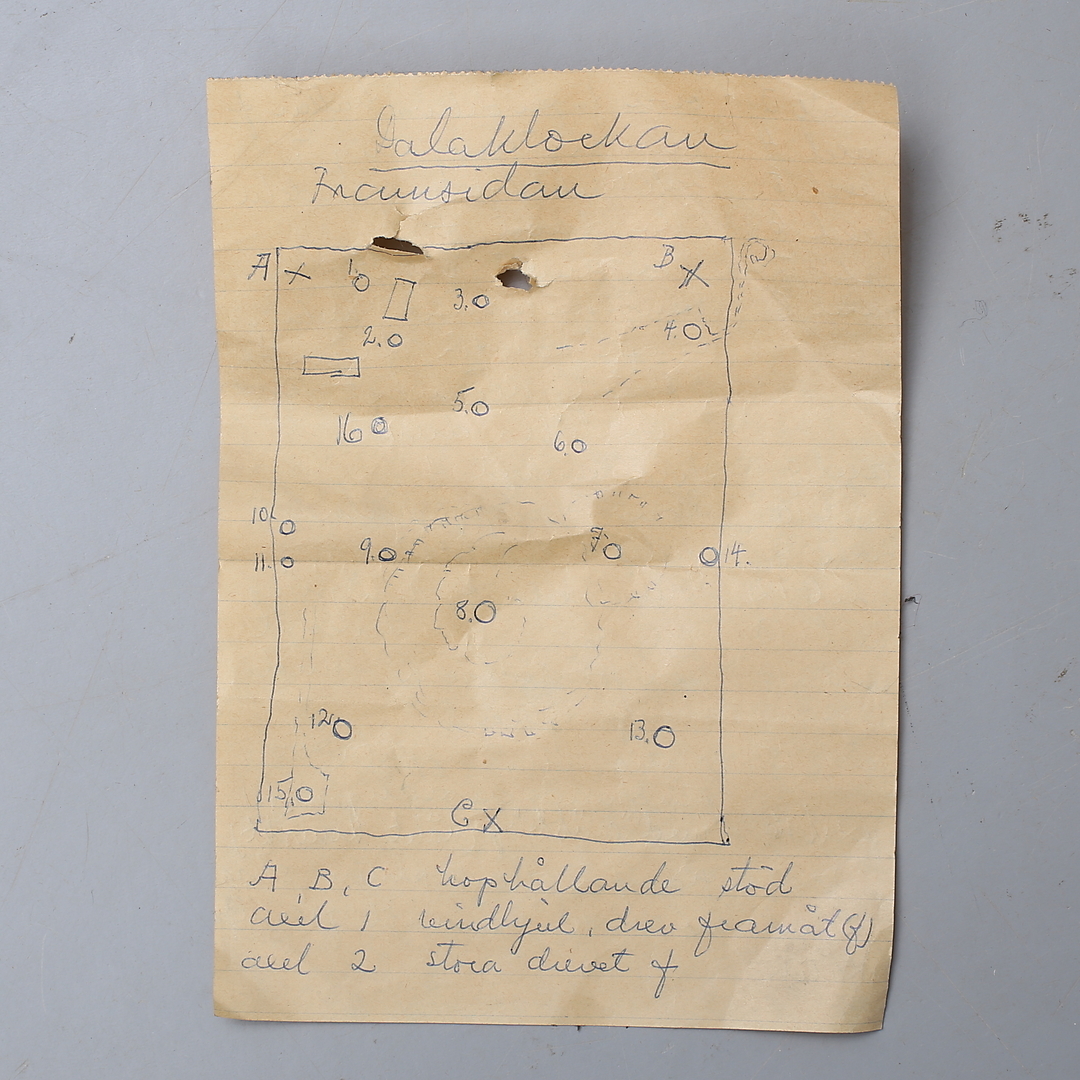 Dalaklockan
Framsidan
A X
1.
B X
3.
4.
2.
5.
16
6.
10.
7.
9.
14.
11.
8.
12
13.
15
C X
A, B, C hophållande stöd
axel 1 vindhjul, drev framåt (f)
axel 2 stora drevet f